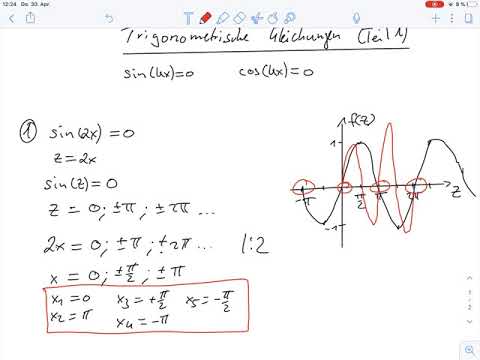 12:24 Do. 30. Apr. 9 %
Trigonometrische Gleichungen (Teil 1)
sin(kx)=0 cos(kx)=0
① sin(2x)=0
z=2x
sin(z)=0
z = 0; ±π; ±2π ...
2x = 0; ±π; ±2π ... |:2
x = 0; ±π/2; ±π
x₁=0 x₃=+π/2 x₅=-π/2
x₂=π x₄=-π
f(z)
1
-π π/2 π 2π z
-1